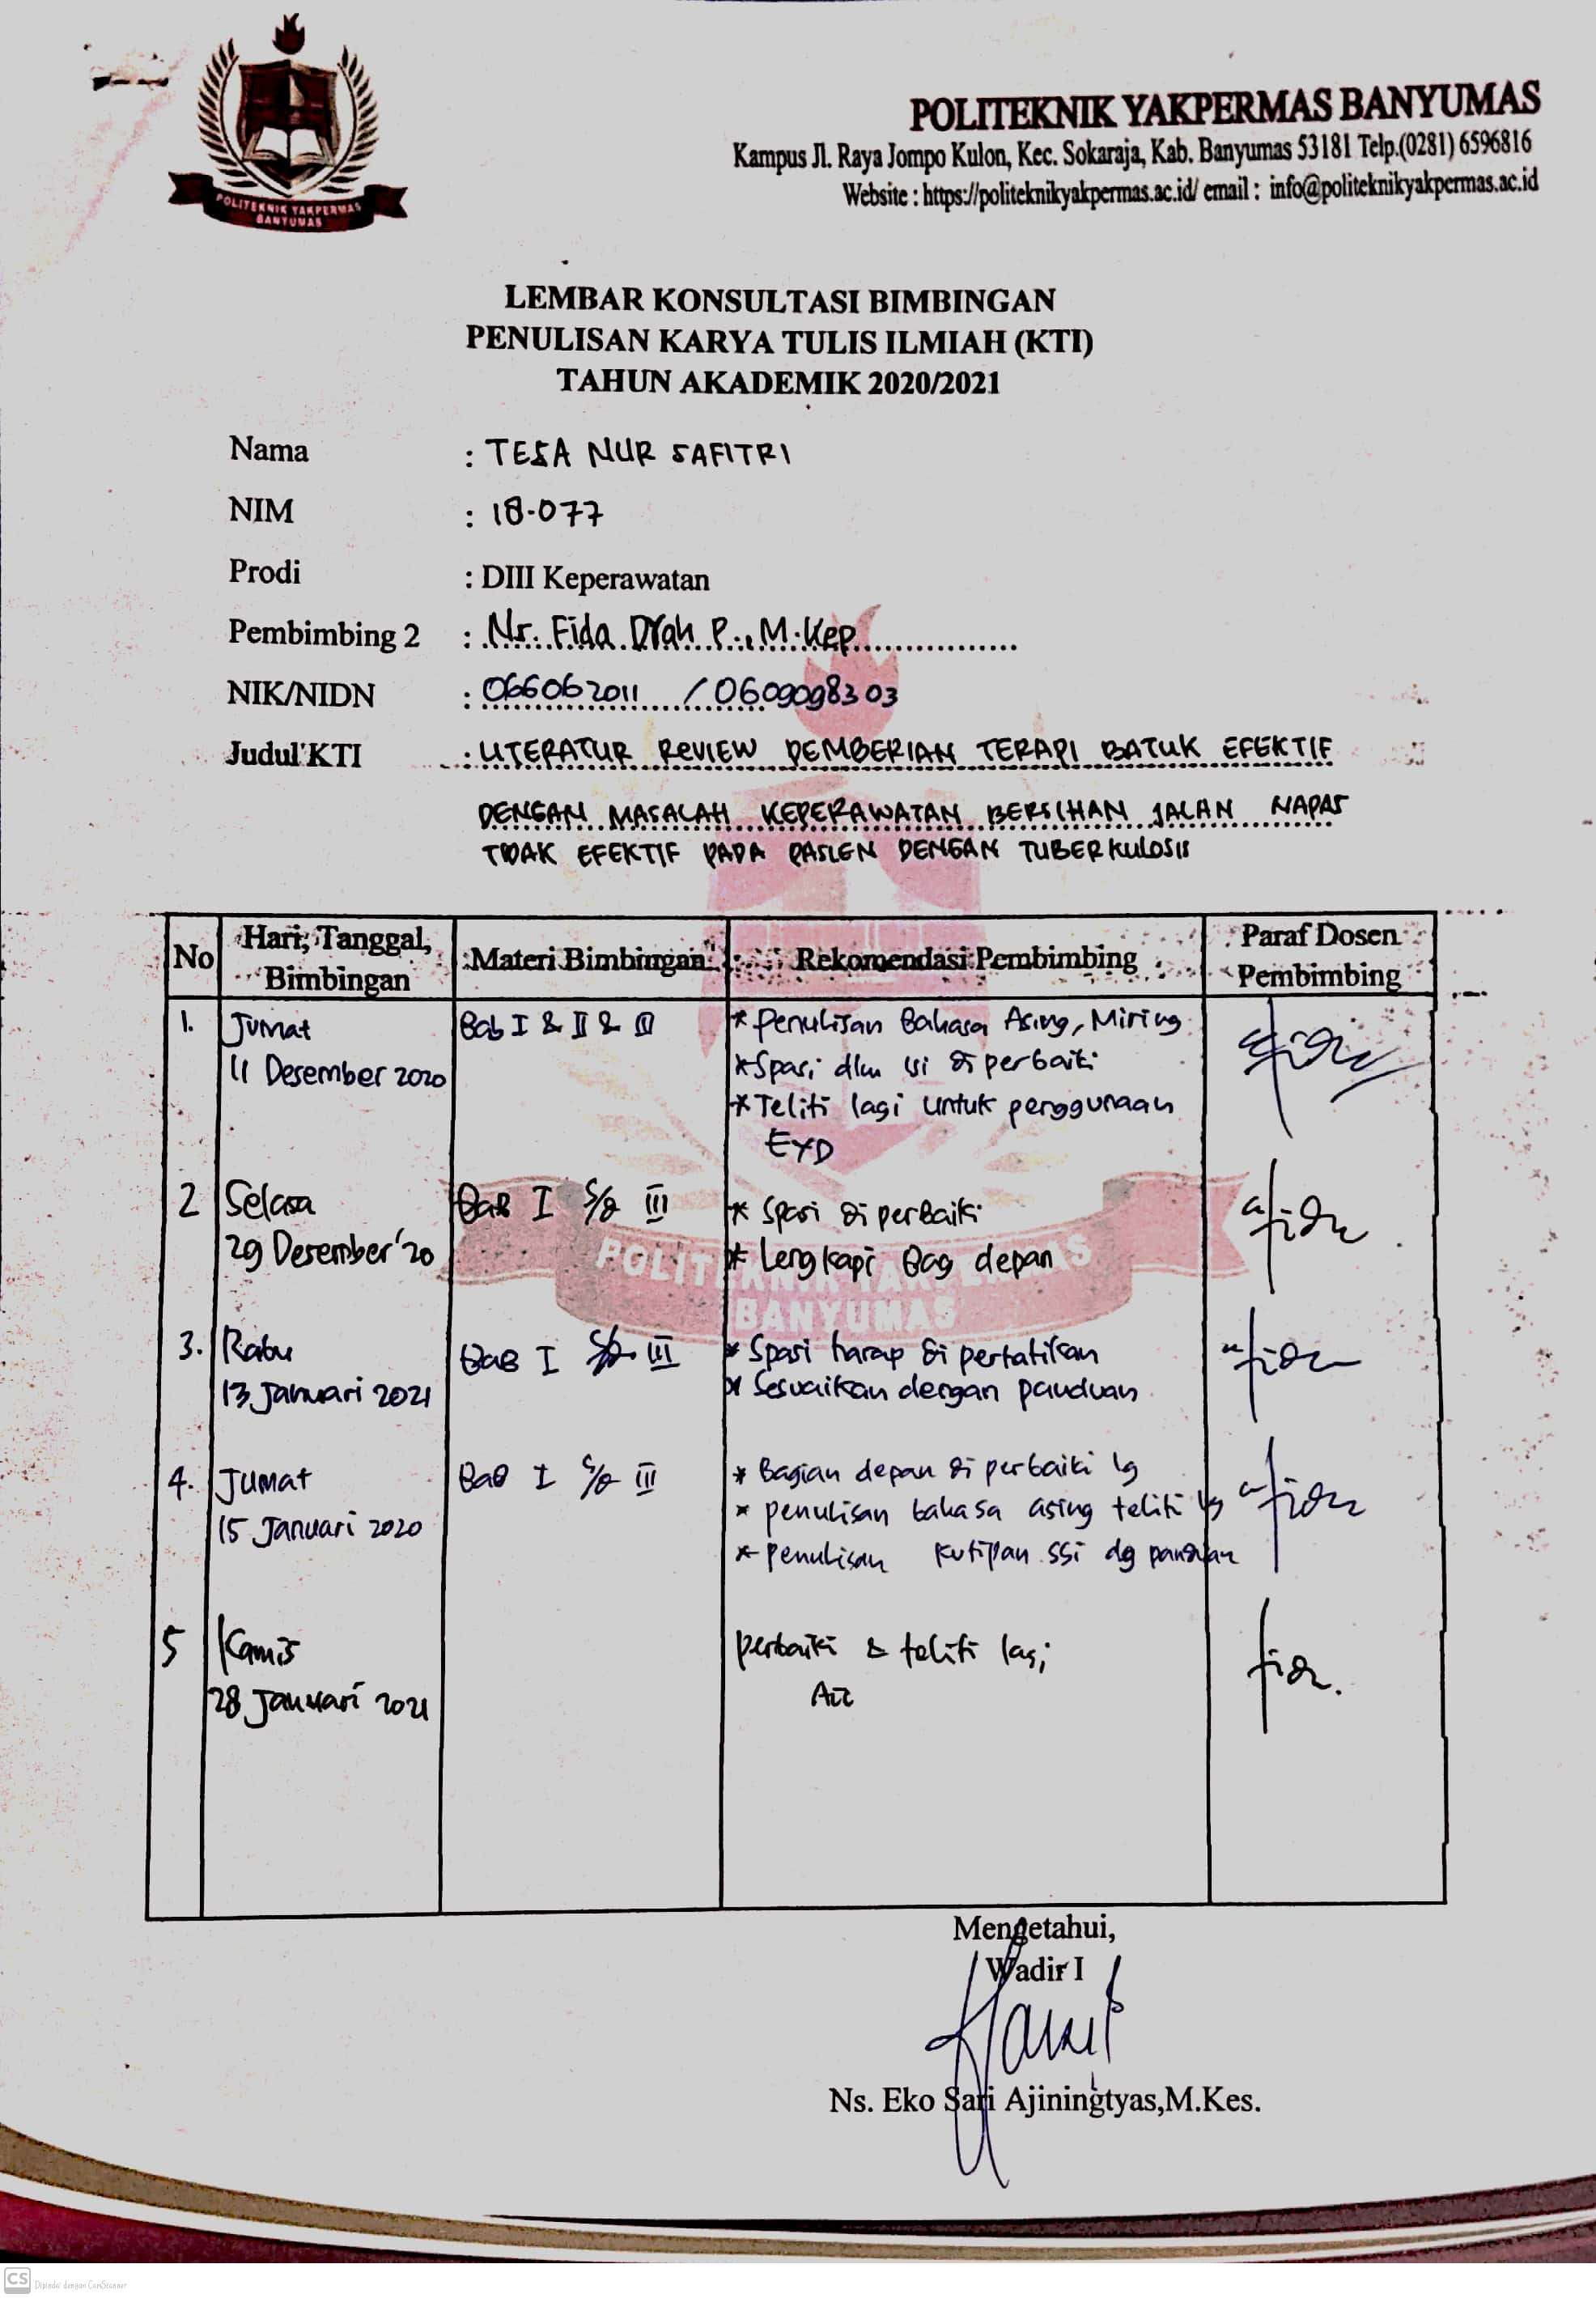 POLITEKNIK YAKPERMAS BANYUMAS
POLITEKNIK YAKPERMAS BANYUMAS
Kampus Jl. Raya Jompo Kulon, Kec. Sokaraja, Kab. Banyumas 53181 Telp.(0281) 6596816
Website : https://politeknikyakpermas.ac.id/ email : info@politeknikyakpermas.ac.id
LEMBAR KONSULTASI BIMBINGAN
PENULISAN KARYA TULIS ILMIAH (KTI)
TAHUN AKADEMIK 2020/2021
Nama : TESA NUR SAFITRI
NIM : 18.077
Prodi : DIII Keperawatan
Pembimbing 2 : Ns. Fida Dyah P., M.Kep
NIK/NIDN : 066062011 / 0609098303
Judul KTI : LITERATUR REVIEW PEMBERIAN TERAPI BATUK EFEKTIF
DENGAN MASALAH KEPERAWATAN BERSIHAN JALAN NAPAS
TIDAK EFEKTIF PADA PASIEN DENGAN TUBERKULOSIS
No Hari, Tanggal, Bimbingan Materi Bimbingan Rekomendasi Pembimbing Paraf Dosen Pembimbing
1. Jumat Bab I & II & III * Penulisan Bahasa Asing, Miring
11 Desember 2020 * Spasi dlm isi di perbaiki
* Teliti lagi untuk penggunaan
EYD
2 Selasa Bab I s/d III * Spasi di perbaiki
29 Desember'20 * Lengkapi Bag depan
POLITEKNIK YAKPERMAS
BANYUMAS
3. Rabu Bab I s/d III * Spasi harap di perhatikan
13 Januari 2021 * Sesuaikan dengan panduan
4. Jumat Bab I s/d III * Bagian depan di perbaiki lg
15 Januari 2020 * penulisan bahasa asing teliti lg
* penulisan kutipan ssi dg panduan
5 Kamis perbaiki & teliti lagi
28 Januari 2021
Mengetahui,
Wadir I
Ns. Eko Sari Ajiningtyas,M.Kes.
CS Dipindai dengan CamScanner